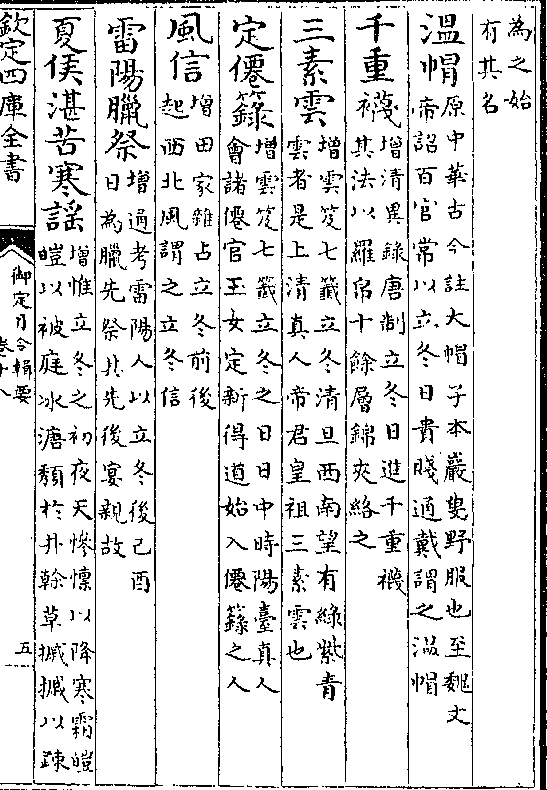 為之始
有其名
溫帽 原中華古今註大帽子本巖叟野服也至魏文
帝詔百官常以立冬日貴賤通戴謂之溫帽
千重襪 增清異錄唐制立冬日進千重襪
其法以羅帛十餘層錦夾絡之
三素雲 增雲笈七籤立冬清旦西南望有綠紫青
雲者是上清真人帝君皇祖三素雲也
定僊籙 增雲笈七籤立冬之日日中時陽臺真人
會諸僊官玉女定新得道始入僊籙之人
風信 增田家雜占立冬前後
起西北風謂之立冬信
雷陽臘祭 增通考雷陽人以立冬後己酉
日為臘先祭其先後宴親故
夏侯湛苦寒謠 增惟立冬之初夜天慘懍以降寒霜皚
皚以被庭冰溏於井幹草摵摵以疎
欽定四庫全書
御定月令輯要
卷十八
五